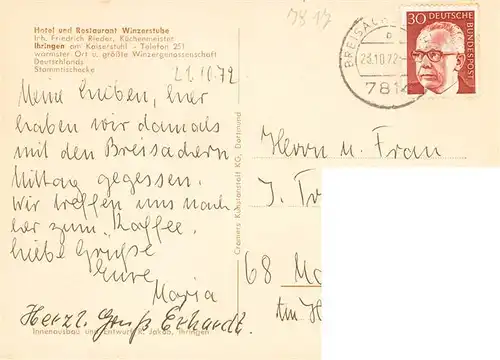 Hotel und Restaurant Winzerstube
Inh. Friedrich Rieder, Küchenmeister
Ihringen am Kaiserstuhl - Telefon 251
wärmster Ort u. größte Winzergenossenschaft
Deutschlands
Stammtischecke
21.10.72
Meine Lieben, hier
haben wir damals
mit den Breisachern
Mittag gegessen.
Wir treffen uns nach
her zum Kaffee.
Liebe Grüße
Eure
Maria
Herzl. Gruß Erhardt.
Innenausbau und Entwurf R. Jakob, Ihringen
Cramers Kunstanstalt KG, Dortmund
7814
BREISACH
b
23.10.72
7814
30
DEUTSCHE
BUNDESPOST
Herrn u. Frau
J.
68